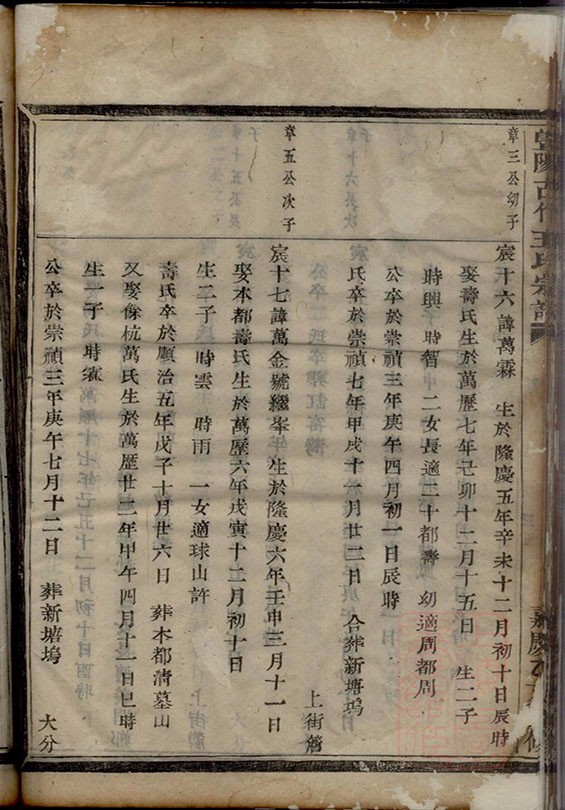 暨陽古竹王氏宗譜
嘉慶乙 修
章三公幼子
宸十六諱萬霖 生於隆慶五年辛未十二月初十日辰時
娶壽氏生於萬歷七年己卯十二月十五日 生二子
時興 時智 二女長適二十都壽 幼適周都周
公卒於崇禎三年庚午四月初一日辰時
氏卒於崇禎七年甲戌十一月廿二日 合葬新塘塢
上街簷
章五公次子
宸十七諱萬金號繼峯 生於隆慶六年壬申三月十一日
娶本都壽氏生於萬歷六年戊寅十二月初十日
生二子 時雲 時雨 一女適球山許
壽氏卒於順治五年戊子十月廿六日 葬本都清墓山
又娶餘杭萬氏生於萬歷廿二年甲午四月十一日巳時
生一子 時
公卒於崇禎三年庚午七月十二日 葬新塘塢
大分